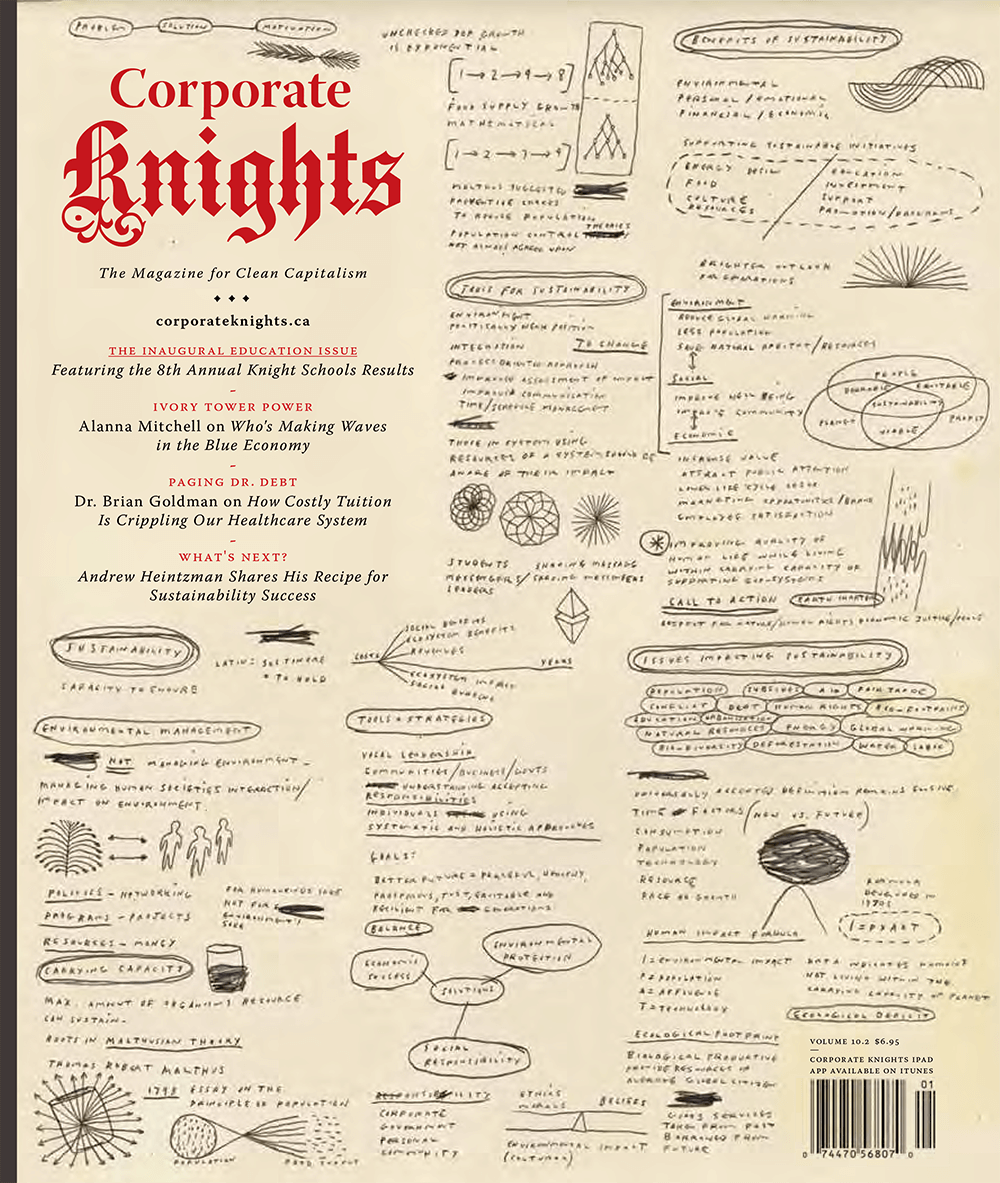 PROBLEM SOLUTION MOTIVATION
Corporate
Knights
The Magazine for Clean Capitalism
corporateknights.ca
THE INAUGURAL EDUCATION ISSUE
Featuring the 8th Annual Knight Schools Results
IVORY TOWER POWER
Alanna Mitchell on Who's Making Waves
in the Blue Economy
PAGING DR. DEBT
Dr. Brian Goldman on How Costly Tuition
Is Crippling Our Healthcare System
WHAT'S NEXT?
Andrew Heintzman Shares His Recipe for
Sustainability Success
UNCHECKED POP GROWTH
IS EXPONENTIAL
[1→2→4→8]
FOOD SUPPLY GROWTH
MATHEMATICAL
[1→2→3→4]
MALTHUS SUGGESTED
PREVENTIVE CHECKS
TO REDUCE POPULATION
POPULATION CONTROL THEORIES
NOT ALWAYS AGREED UPON
TOOLS FOR SUSTAINABILITY
ENVIRONMENT
POLITICALLY WEAK POSITION
INTEGRATION TO CHANGE
PROCESS ORIENTED APPROACH
IMPROVED ASSESSMENT OF IMPACT
IMPROVED COMMUNICATION
TIME/SCHEDULE MANAGEMENT
THOSE IN SYSTEM USING
RESOURCES OF A SYSTEM SHOULD BE
AWARE OF THEIR IMPACT
STUDENTS SHARING MESSAGE
MESSENGERS/SHARING MESSENGERS
LEADERS
BENEFITS OF SUSTAINABILITY
ENVIRONMENTAL
PERSONAL/EMOTIONAL
FINANCIAL/ECONOMIC
SUPPORTING SUSTAINABLE INITIATIVES
ENERGY DESIGN
FOOD
CULTURE
RESOURCES
EDUCATION
INVESTMENT
SUPPORT
PROMOTION/PROGRAMS
BRIGHTER OUTLOOK
FOR GENERATIONS
ENVIRONMENT
REDUCE GLOBAL WARMING
LESS POPULATION
SAVE NATURAL HABITAT/RESOURCES
SOCIAL
IMPROVE WELL BEING
IMPROVE COMMUNITY
ECONOMIC
INCREASE VALUE
ATTRACT PUBLIC ATTENTION
LOWER LIFE CYCLE
MARKETING OPPORTUNITIES/BRAND
EMPLOYEE SATISFACTION
PEOPLE
BEARABLE EQUITABLE
SUSTAINABILITY
PLANET PROFIT
VIABLE
IMPROVING QUALITY OF
HUMAN LIFE WHILE LIVING
WITHIN CARRYING CAPACITY OF
SUPPORTING ECO-SYSTEMS
CALL TO ACTION EARTH CHARTER
RESPECT FOR NATURE/HUMAN RIGHTS ECONOMIC JUSTICE/PEACE
SUSTAINABILITY
LATIN: SUSTINERE
TO HOLD
CAPACITY TO ENDURE
COSTS
SOCIAL BENEFITS
ECOSYSTEM BENEFITS
REVENUES
YEARS
ECOSYSTEM IMPACT
SOCIAL BURDENS
ENVIRONMENTAL MANAGEMENT
NOT MANAGING ENVIRONMENT -
MANAGING HUMAN SOCIETIES INTERACTION/
IMPACT ON ENVIRONMENT.
POLITICS - NETWORKING
PROGRAMS - PROJECTS
RESOURCES - MONEY
FOR HUMANKINDS SAKE
NOT FOR
ENVIRONMENTS
SAKE
CARRYING CAPACITY
MAX. AMOUNT OF ORGANISMS RESOURCE
CAN SUSTAIN.
ROOTS IN MALTHUSIAN THEORY
THOMAS ROBERT MALTHUS
1798 ESSAY ON THE
PRINCIPLE OF POPULATION
POPULATION FOOD SUPPLY
TOOLS + STRATEGIES
VOCAL LEADERSHIP
COMMUNITIES/BUSINESS/GOVTS
UNDERSTANDING ACCEPTING
RESPONSIBILITIES
INDIVIDUALS USING
SYSTEMATIC AND HOLISTIC APPROACHES
GOALS:
BETTER FUTURE = PEACEFUL, HEALTHY,
PROSPEROUS, JUST, EQUITABLE AND
RESILIENT FOR GENERATIONS
BALANCE
ECONOMIC
SUCCESS
ENVIRONMENTAL
PROTECTION
SOLUTIONS
SOCIAL
RESPONSIBILITY
RESPONSIBILITY
CORPORATE
GOVERNMENT
PERSONAL
COMMUNITY
ETHICS
MORALS BELIEFS
ENVIRONMENTAL IMPACT
(CULTURAL)
ISSUES IMPACTING SUSTAINABILITY
POPULATION SUBSIDIES AID FAIR TRADE
CONFLICT DEBT HUMAN RIGHTS ECO-FOOTPRINTS
EDUCATION URBANISATION ENERGY GLOBAL WARMING
NATURAL RESOURCES
BIO-DIVERSITY DEFORESTATION WATER LABOR
UNIVERSALLY ACCEPTED DEFINITION REMAINS ELUSIVE
TIME FACTORS (NOW VS. FUTURE)
CONSUMPTION
POPULATION
TECHNOLOGY
RESOURCE
RACE OR GROWTH
FORMULA
DEVELOPED IN
1970S
I=PXAXT
HUMAN IMPACT FORMULA
I = ENVIRONMENTAL IMPACT
P = POPULATION
A = AFFLUENCE
T = TECHNOLOGY
DATA INDICATES HUMANS
NOT LIVING WITHIN THE
CARRYING CAPACITY OF PLANET
ECOLOGICAL DEFICIT
ECOLOGICAL FOOTPRINT
BIOLOGICAL PRODUCTIVE
RESOURCES
AVERAGE GLOBAL CITIZEN
GOODS SERVICES
TAKEN FROM PAST
BORROWED FROM
FUTURE
VOLUME 10.2 $6.95
CORPORATE KNIGHTS IPAD
APP AVAILABLE ON ITUNES
01
0 74470 56807 0